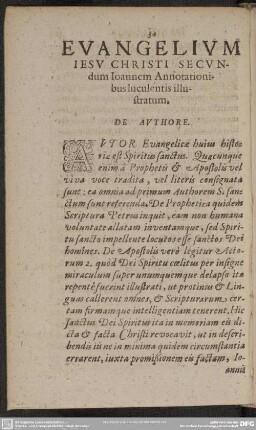 EVANGELIVM
IESV CHRISTI SECVN-
dum Ioannem Annotationi-
bus luculentis illu-
stratum.
DE AVTHORE.
AVTOR Evangelicæ huius histo-
riæ est Spiritus sanctus. Quæcunque
enim à Prophetis & Apostolis vel
viva voce tradita, vel literis consignata
sunt: ea omnia ad primum Authorem S. san-
ctum sunt referenda. De Prophetica quidem
Scriptura Petrus inquit, eam non humana
voluntate allatam inventamque, sed Spiri-
tu sancto impellente locutos esse sanctos Dei
homines. De Apostolis verò legitur Acto-
rum 2. quòd Dei Spiritu cœlitus per insigne
miraculum super unumquemque delapso ita
repentè fuerint illustrati, ut protinus & Lin-
guas callerent omnes, & Scripturarum cer-
tam firmamque intelligentiam tenerent. Hic
sanctus Dei Spiritus ita in memoriam eis di-
cta & facta Christi revocavit, ut in descri-
bendis iis ne in minima quidem circumstantia
errarent, iuxta promissionem eis factam, Io-
annis